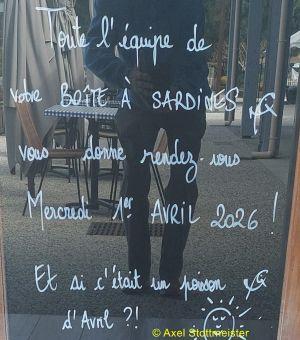 Toute l'équipe de
votre BOÎTE À SARDINES
vous donne rendez-vous
Mercredi 1er AVRIL 2026 !
Et si c'était un poisson
d'Avril ?!
© Axel Stottmeister